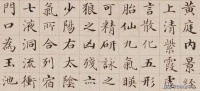 黃庭內景
上清紫霞虛
言散化五形
胎仙九氣
可精研詠之
狼之凶殘
少陽右太陰
七液洞流衝
門口為玉池